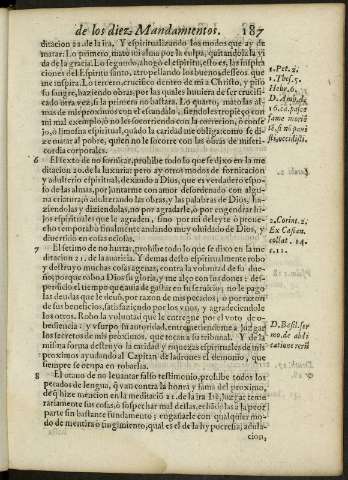 de los diez Mandamientos. 187
ditacion 22. de la ira. Y espiritualizando los modos que ay de
matar. Lo primero, mato mi alma por la culpa, quitandola la vi
da de la gracia. Lo segundo, ahogo el espiritu, esto es, las inspira
ciones del Espiritu santo, atropellando los buenos desseos que
me inspira. Lo tercero, crucifico dentro de mi a Christo, y piso
su sangre, haziendo obras, por las quales huviera de ser crucifi-
cado otra vez, si la primera no bastara. Lo quarto, mato las al-
mas de mis proximos con el escandalo, siendoles tropieço con
mi mal exemplo, ò no les socorriendo con la correcion, ò conse
jo, ò limosna espiritual, quãdo la caridad me obliga como se di-
ze matar al pobre, quien no le socorre con las obras de miseri-
cordia corporales.
1. Pet. 2.
1. Thes. 5.
Hebr. 6.
6 El sexto de no fornicar, prohibe todo lo que se dixo en la me
ditacion 20. de la luxuria: pero ay otros modos de fornicacion
y adulterio espiritual, dexando a Dios, que es verdadero espo-
so de las almas, por juntarme con amor desordenado con algu-
na criatura, ò adulterando las obras, y las palabras de Dios, ha-
ziendolas y diziendolas, no por agradarle, ò por engendrar hi-
jos espirituales que le agraden, sino por mi deleyte ò prove-
cho temporal ò finalmente andando muy olvidado de Dios, y
divertido en cosas ociosas.
2. Corint. 2.
Ex Casian.
collat. 14.
c. 11.
7 El setimo de no hurtar, prohibe todo lo que se dixo en la me
ditacion 21. de la avaricia. Y demas desto espiritualmente robo
y destruyo muchas cosas agenas, contra la voluntad de su due-
ño, porque robo a Dios su gloria, y me alço con sus dones: des-
perdicio el tiempo que avia de gastar en su servicio; no le pago
las deudas que le devo, por razon de mis pecados; ò por razon
de sus beneficios, satisfaziendo por los unos, y agradeciendole
los otros. Robo la voluntad que le entregue por el voto de o-
bediencia: y usurpo su autoridad, entremetiendome a juzgar
los secretos de mis proximos, que tocan a su tribunal. Y de la
misma forma destruyo la caridad y riquezas espirituales de mis
proximos ayudando al Capitan de ladrones el demonio, que
siempre se ocupa en robarlas.
D. Basil. ser
mo. de abdi
catione rerũ
8 El otavo de no levantar falso testimonio, prohibe todos los
pecados de lengua, q̃ van contra la honra y fama del proximo,
de q̃ hize mencion en la meditaciõ 21. de la ira Itẽ, juzgar teme
rariamente sus cosas, ò sospechar mal dellas, echãdolas a la peor
parte sin bastante fundamento; engañarle con qualquier mo-
do de mentira ò fingimiento, qual es el de la hypocresia, adula-
cion,